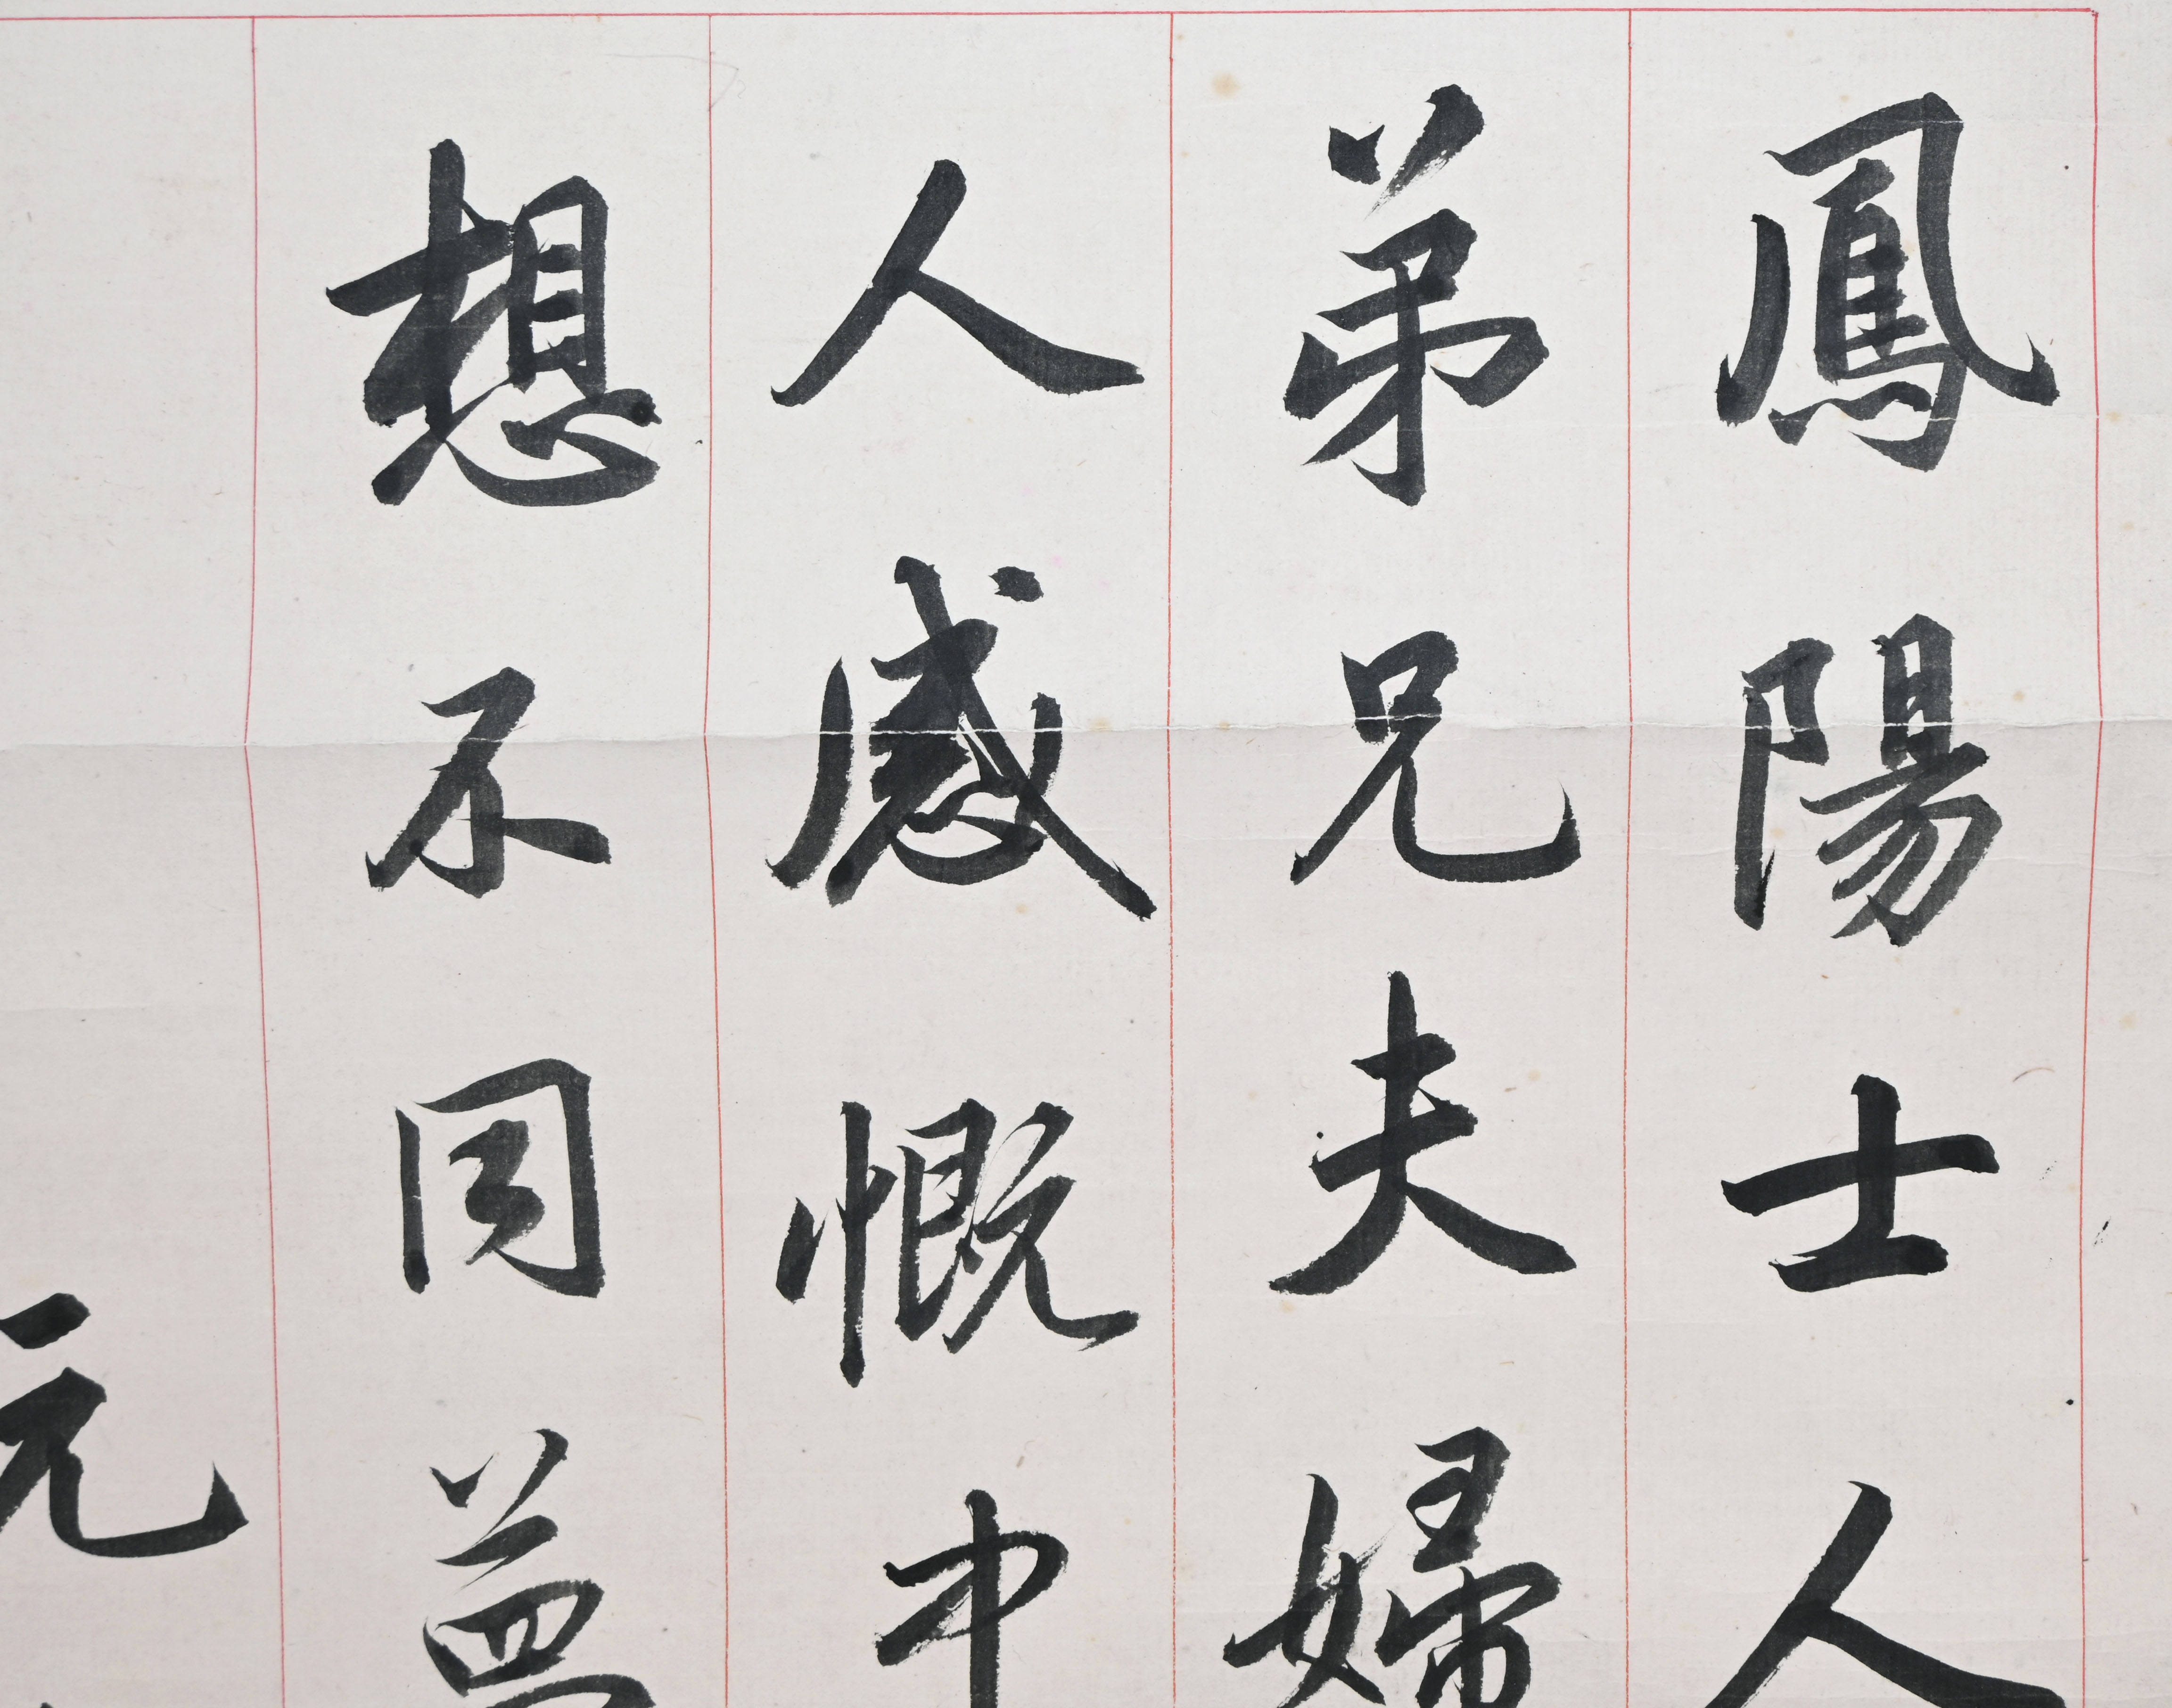 鳳陽士人
弟兄夫婦
人感慨中
想不同夢
元